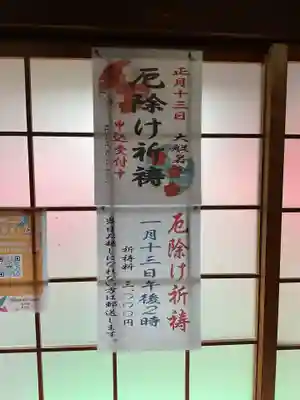 正月十三日 大般若
厄除け祈祷
申込受付中
厄除け祈祷
一月十三日午後2時
祈祷料 三、〇〇〇円
当日お越しになれない方は郵送します。